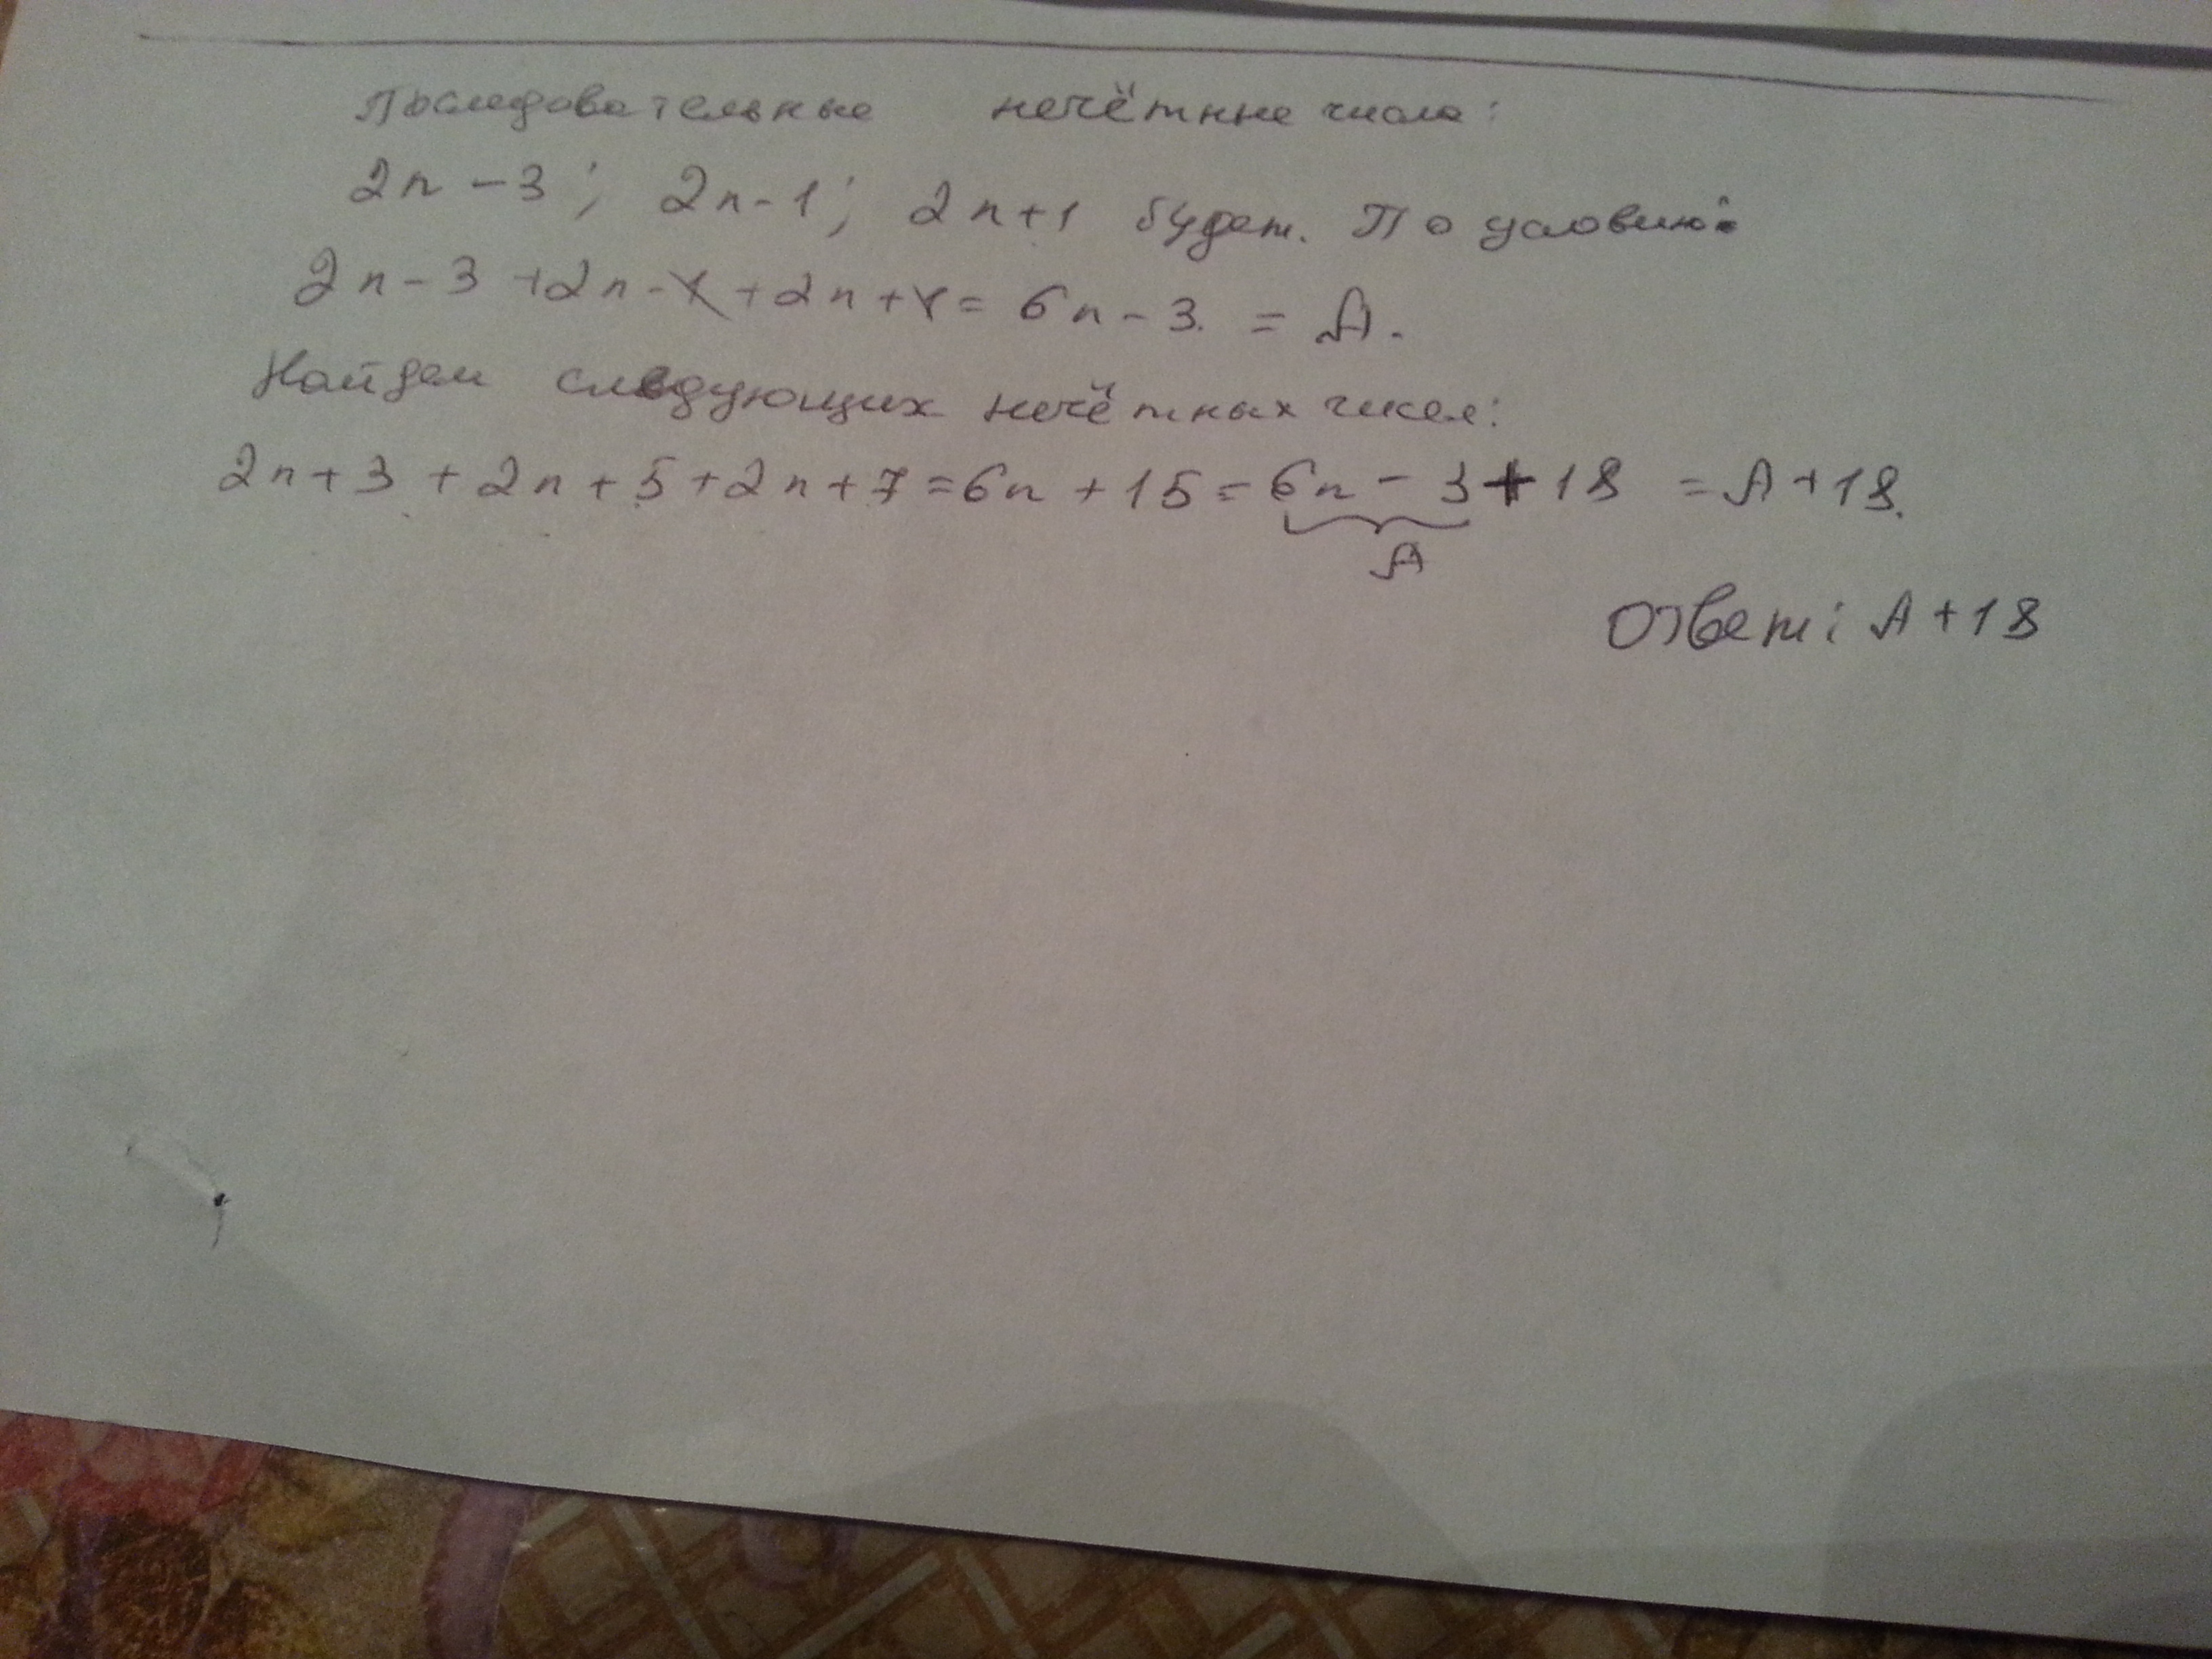 Последовательные нечётные числа:
2n - 3; 2n - 1; 2n + 1 будет. По условию:
2n - 3 + 2n - 1 + 2n + 1 = 6n - 3. = A.
Найдем следующих нечётных чисел:
2n + 3 + 2n + 5 + 2n + 7 = 6n + 15 = 6n - 3 + 18 = A + 18.
A
Ответ: A + 18